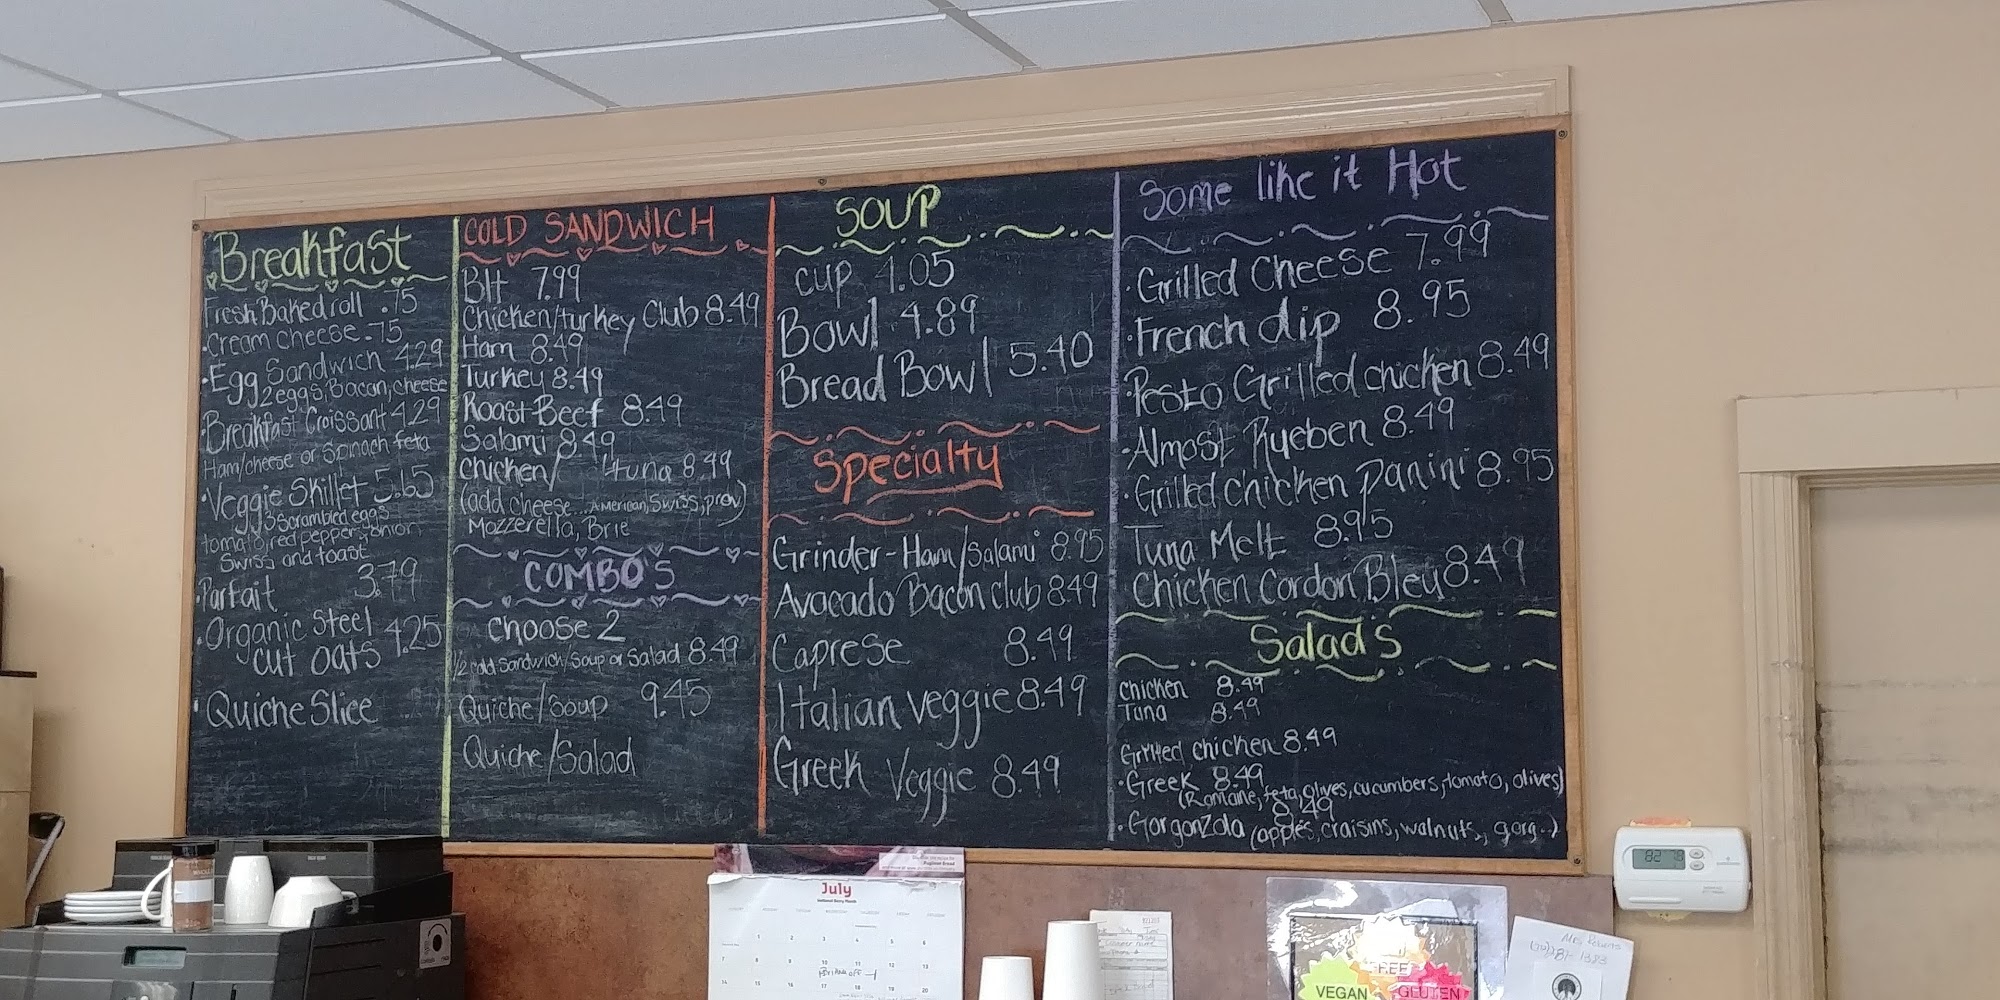 Breakfast
Fresh Baked roll .75
·Cream cheese .75
·Egg Sandwich 4.29
2 eggs, Bacon, cheese
·Breakfast Croissant 4.29
Ham/cheese or Spinach feta
·Veggie Skillet 5.65
3 Scrambled eggs
tomato, red pepper, onion,
Swiss and toast
·Parfait 3.79
·Organic Steel
cut oats 4.25
·Quiche Slice
COLD SANDWICH
Blt 7.99
Chicken/turkey Club 8.49
Ham 8.49
Turkey 8.49
Roast Beef 8.49
Salami 8.49
Chicken/ tuna 8.49
(add cheese... American, Swiss, prov)
Mozzerella, Brie
COMBO'S
choose 2
1/2 cold Sandwich/Soup or Salad 8.49
Quiche/Soup 9.45
Quiche/Salad
SOUP
cup 4.05
Bowl 4.89
Bread Bowl 5.40
Specialty
Grinder-Ham/Salami 8.95
Avacado Bacon club 8.49
Caprese 8.49
Italian veggie 8.49
Greek Veggie 8.49
Some like it Hot
·Grilled Cheese 7.99
·French dip 8.95
Pesto Grilled chicken 8.49
·Almost Rueben 8.49
·Grilled chicken panini 8.95
Tuna Melt 8.95
Chicken Cordon Bleu 8.49
Salads
chicken 8.49
Tuna 8.49
Grilled chicken 8.49
·Greek 8.49
(Romaine, feta, olives, cucumbers, tomato, olives)
8.49
·Gorgonzola (apples, craisins, walnuts, gorg..)
July
1 2 3 4 5 6
7 8 9 10 11 12 13
14 15 16 17 18 19 20
82
Mrs. Robens
FREE
VEGAN
GLUTEN